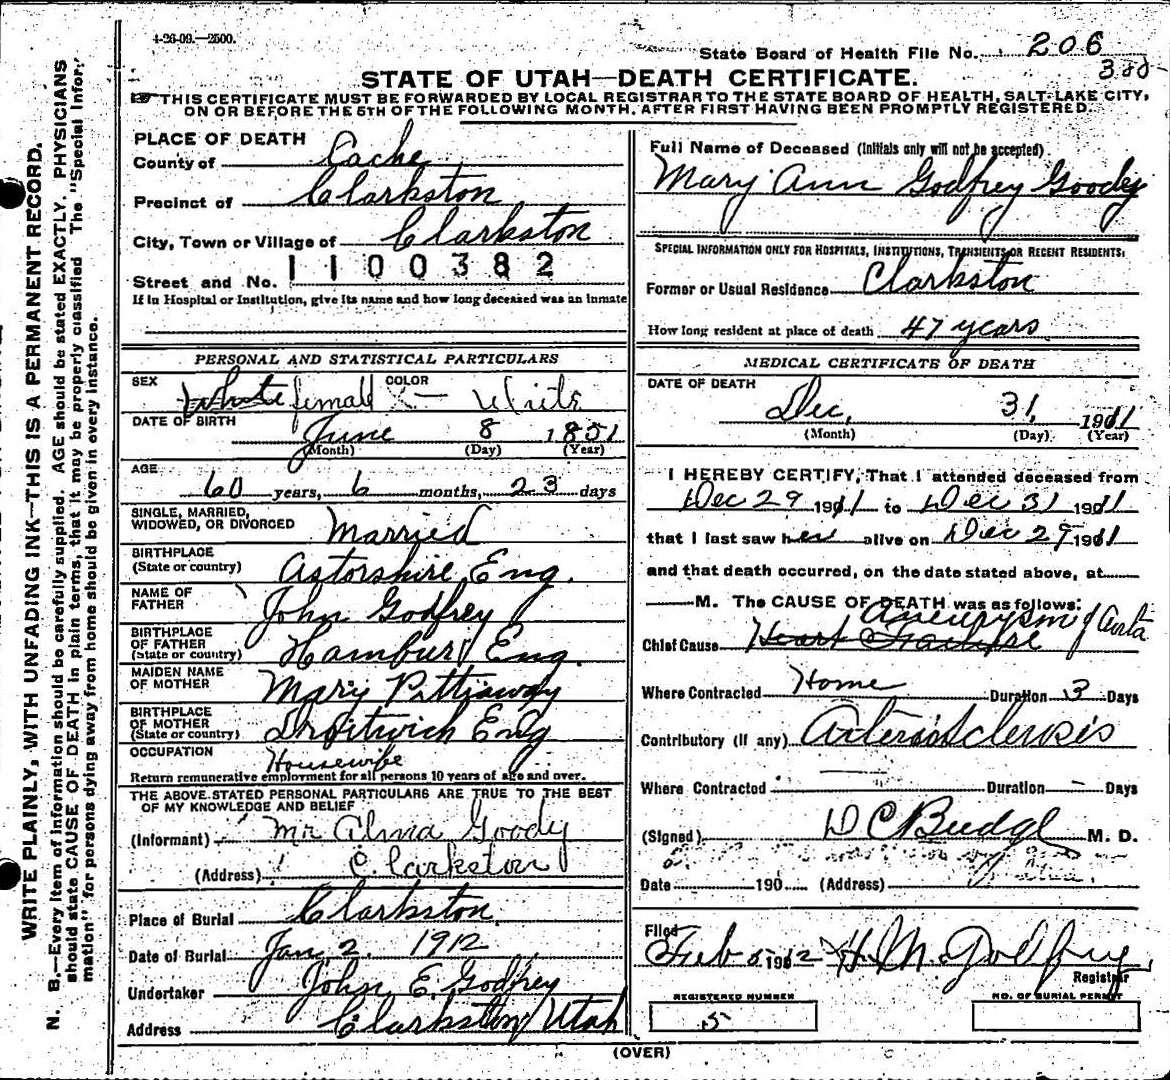 4-26-09.—2500.
State Board of Health File No. 206
STATE OF UTAH—DEATH CERTIFICATE.
THIS CERTIFICATE MUST BE FORWARDED BY LOCAL REGISTRAR TO THE STATE BOARD OF HEALTH, SALT LAKE CITY,
ON OR BEFORE THE 5TH OF THE FOLLOWING MONTH, AFTER FIRST HAVING BEEN PROMPTLY REGISTERED.
PLACE OF DEATH
County of Cache
Precinct of Clarkston
City, Town or Village of Clarkston
Street and No. 1100382
If in Hospital or Institution, give its name and how long deceased was an inmate
PERSONAL AND STATISTICAL PARTICULARS
SEX White female COLOR White
DATE OF BIRTH June 8 1851
(Month) (Day) (Year)
AGE
60 years, 6 months, 23 days
SINGLE, MARRIED,
WIDOWED, OR DIVORCED Married
BIRTHPLACE
(State or country) Astorshire Eng.
NAME OF
FATHER John Godfrey
BIRTHPLACE
OF FATHER
(State or country) Hambury Eng.
MAIDEN NAME
OF MOTHER Mary Pittaway
BIRTHPLACE
OF MOTHER
(State or country) Droitwich Eng
OCCUPATION Housewife
Return remunerative employment for all persons 10 years of age and over.
THE ABOVE STATED PERSONAL PARTICULARS ARE TRUE TO THE BEST
OF MY KNOWLEDGE AND BELIEF
(Informant) Mr Alma Goody
(Address) Clarkston
Place of Burial Clarkston
Date of Burial Jan. 2. 1912
Undertaker John E. Godfrey
Address Clarkston Utah
Full Name of Deceased (Initials only will not be accepted)
Mary Ann Godfrey Goody
SPECIAL INFORMATION ONLY FOR HOSPITALS, INSTITUTIONS, TRANSIENTS OR RECENT RESIDENTS:
Former or Usual Residence Clarkston
How long resident at place of death 47 years
MEDICAL CERTIFICATE OF DEATH
DATE OF DEATH
Dec, 31 1911
(Month) (Day) (Year)
I HEREBY CERTIFY, That I attended deceased from
Dec 29 1911 to Dec 31 1911
that I last saw her alive on Dec 29 1911
and that death occurred, on the date stated above, at
M. The CAUSE OF DEATH was as follows:
Aneurysm of Aorta
Chief Cause Heart
Where Contracted Home Duration 3 Days
Contributory (if any) Arteriosclerosis
Where Contracted Duration – Days
(Signed) D C Budge M. D.
Date 190 (Address)
Filed
Feb 5 1912 H. M. Godfrey
Registrar
REGISTERED NUMBER
5
NO. OF BURIAL PERMIT
(OVER)
WRITE PLAINLY, WITH UNFADING INK—THIS IS A PERMANENT RECORD.
N. B.—Every item of information should be carefully supplied. AGE should be stated EXACTLY. PHYSICIANS
should state CAUSE OF DEATH in plain terms, that it may be properly classified. The "Special Infor-
mation" for persons dying away from home should be given in every instance.